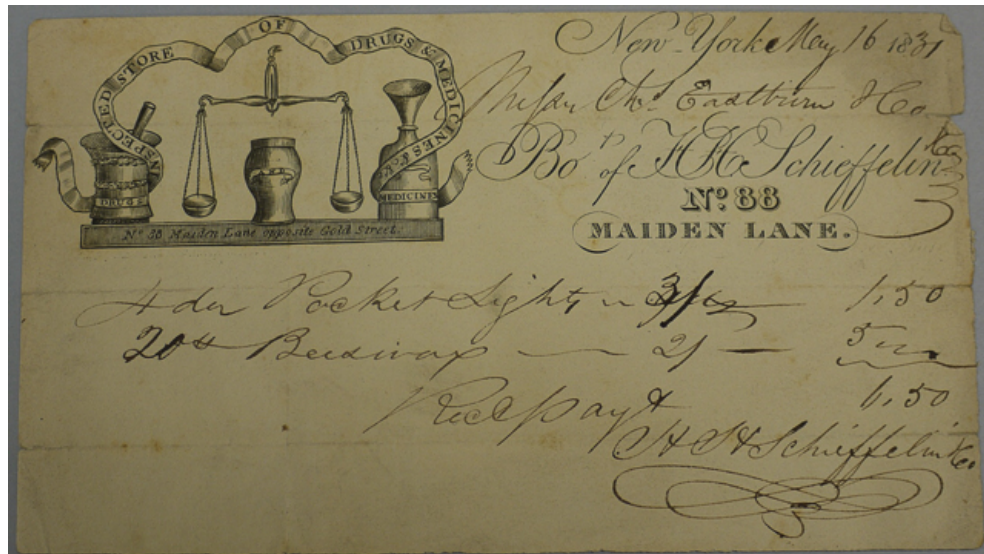 INSPECTED STORE OF DRUGS & MEDICINES &c.
DRUGS
MEDICINES
No. 88 Maiden Lane opposite Gold Street.
New-York May 16 1831
Messrs Chs. Eastburn & Co
Bot. of H H Schieffelin & Co
No. 88
MAIDEN LANE.
4 doz Pocket Lights 3/ 1,50
20 lb Beeswax — 2/ — 5
6,50
Recd payt
H H Schieffelin & Co